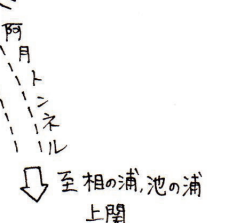 阿月トンネル
至相の浦,池の浦
上関